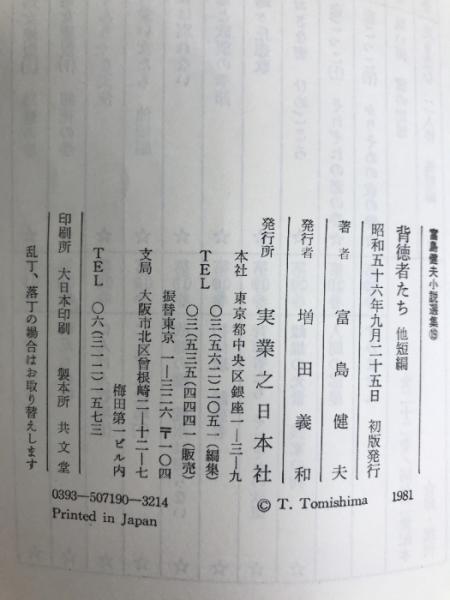 富島健夫小説選集
背徳者たち 他短編
昭和五十六年九月二十五日 初版発行
著者 富島健夫
発行者 増田義和
発行所 実業之日本社
本社 東京都中央区銀座一—三—九
TEL 〇三(五六二)二〇五一(編集)
〇三(五三五)四四四一(販売)
振替東京 一—三二六 〒一〇四
支局 大阪市北区曽根崎二—十二—七
梅田第一ビル内
TEL 〇六(三一二)一五七三
印刷所 大日本印刷 製本所 共文堂
乱丁、落丁の場合はお取り替えします
© T. Tomishima 1981
0393—507190—3214
Printed in Japan